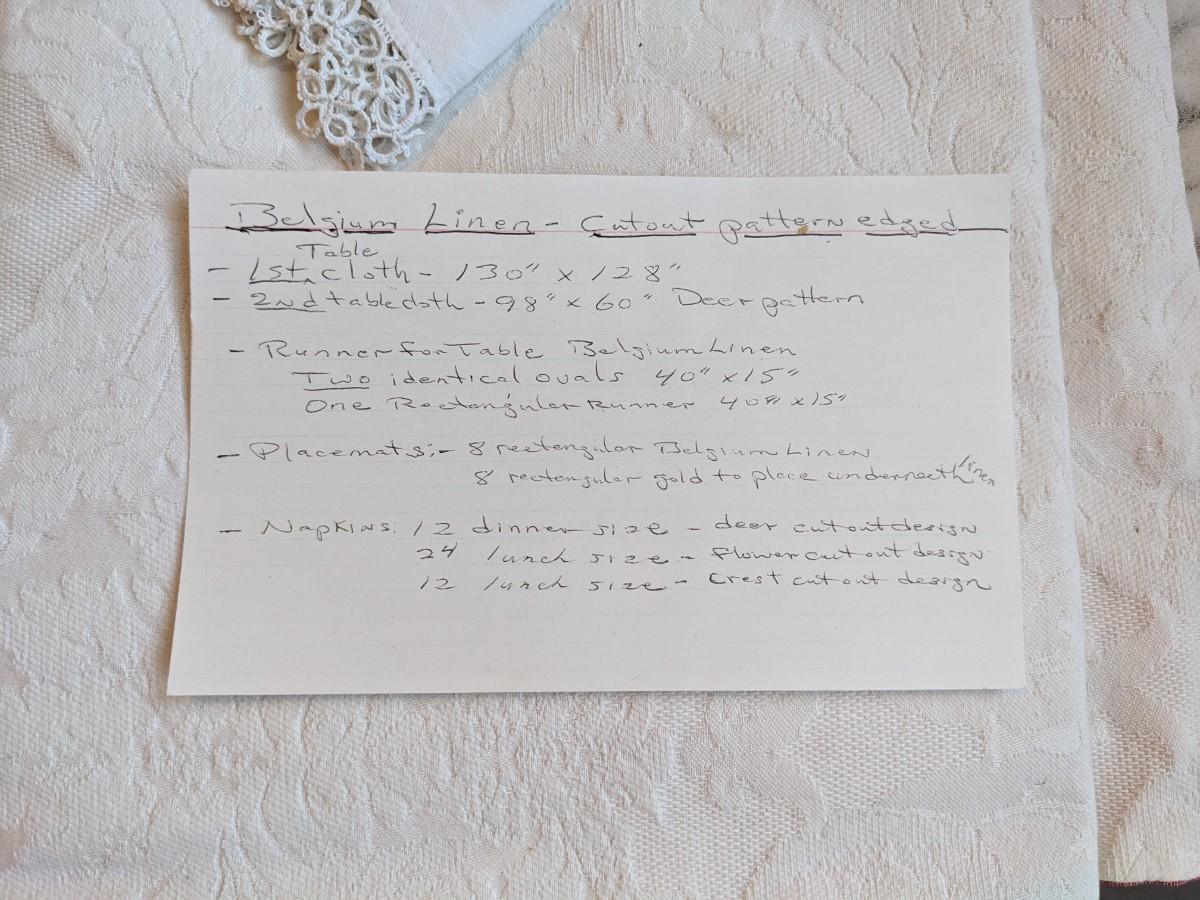 Belgium Linen - Cutout pattern edged
- 1st Table cloth - 130" x 128"
- 2nd tablecloth - 98" x 60" Deer pattern
- Runner for Table Belgium Linen
Two identical ovals 40" x 15"
One Rectangular Runner 40" x 15"
- Placemats:- 8 rectengular Belgium Linen
8 rectengular gold to place underneeth linen
- Napkins: 12 dinner size - deer cutout design
24 lunch size - flower cut out design
12 lunch size - crest cut out design